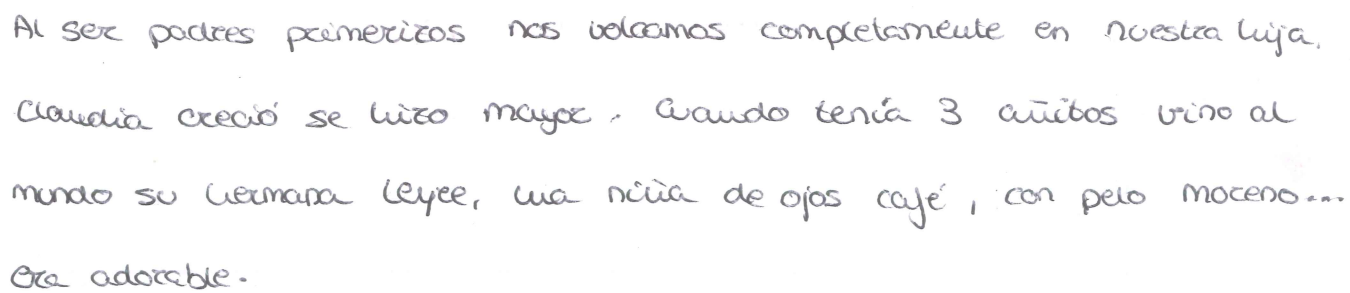 Al ser padres primerizos nos volcamos completamente en nuestra hija.
Claudia creció se hizo mayor. Cuando tenía 3 añitos vino al
mundo su hermana Leyre, una niña de ojos café, con pelo moreno...
Era adorable.